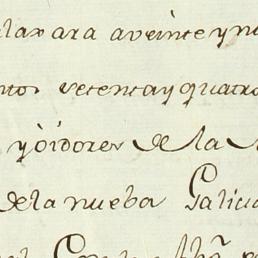 alaxara a veinte y nu
ntos setenta y quatro
y oidores de la
de la nueba Galicia